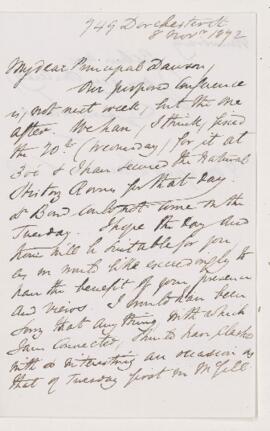 749 Dorchester St
8 Nov. 1892
My dear Principal Dawson,
Our proposed Conference
is, not next week, but the one
after. We have, I think, fixed
the (Wednesday) for it at
3 o'c & I have secured the Natural
History Rooms for that day
as Bond could not come on the
Tuesday. I hope the day and
hour will be suitable for you
as we would like exceedingly to
have the benefit of your presence
and views. I should have been
sorry that anything with which
I am connected, should have clashed
with so interesting an occasion as
that of Tuesday first in McGill